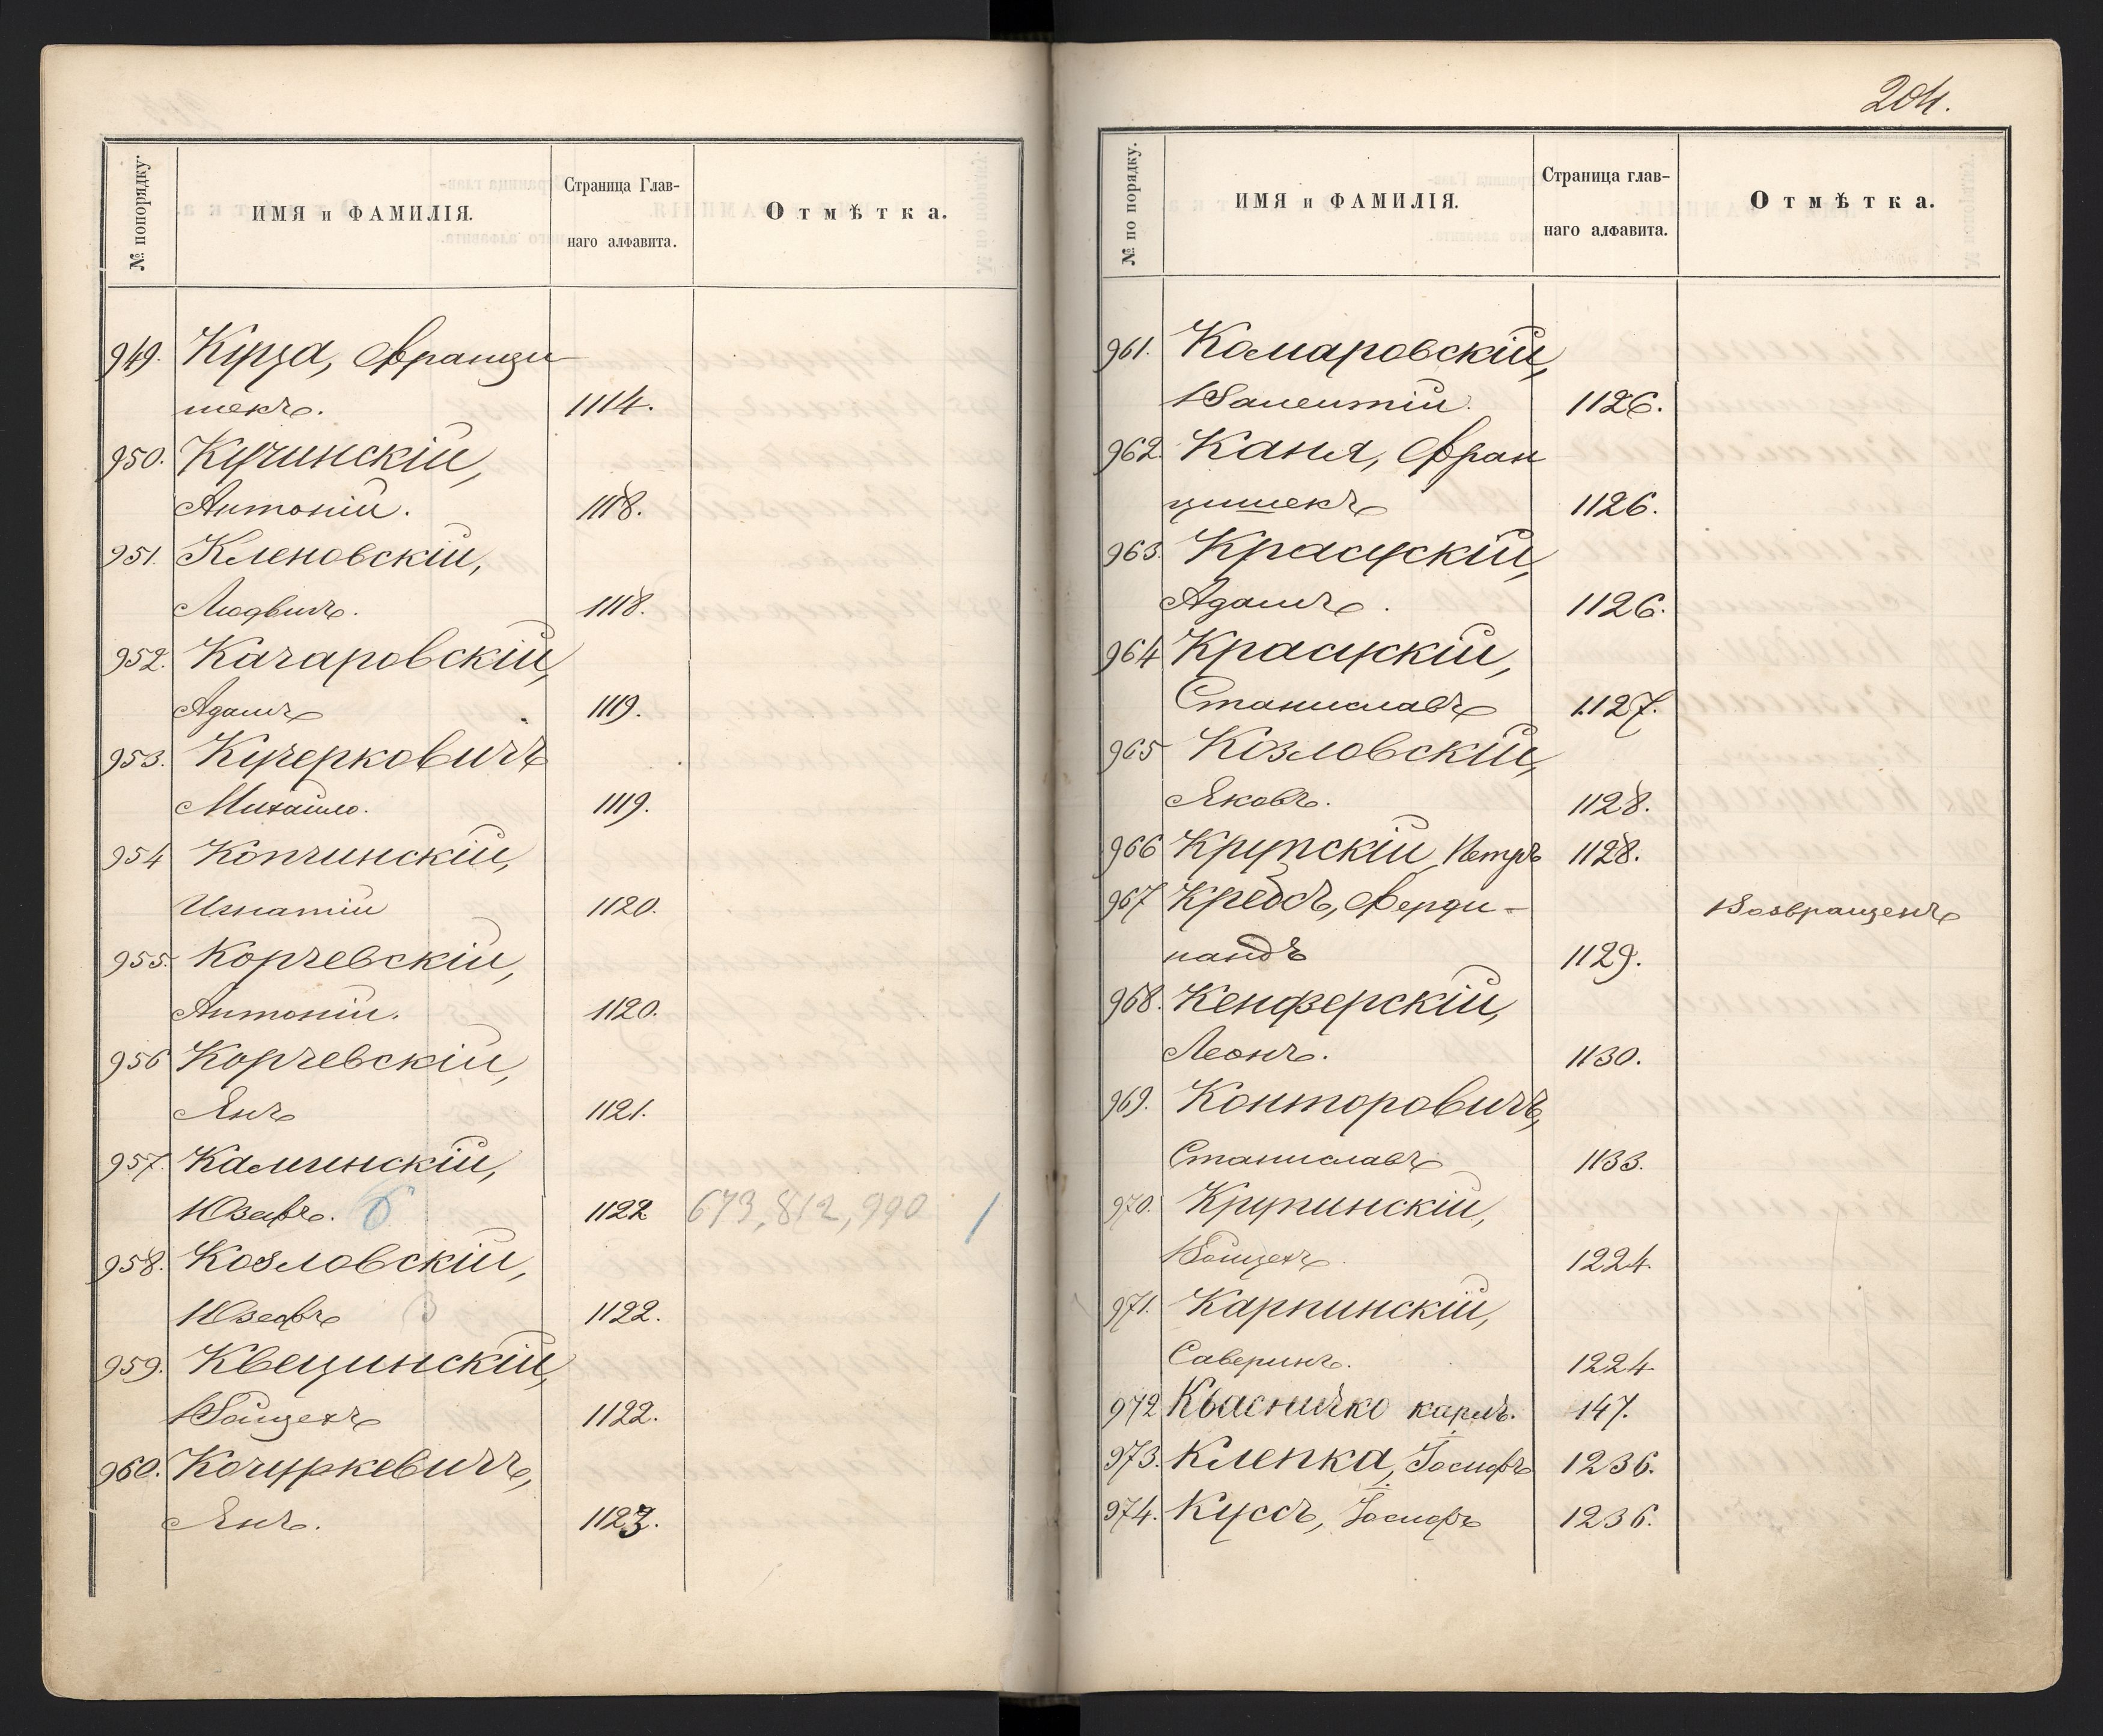 № попорядку.
ИМЯ и ФАМИЛІЯ.
Страница Глав-
наго алфавита.
Отмѣтка.
949. Куца, Франци
шекъ. 1114.
950. Кучинскій,
Антоній. 1118.
951. Кленовскій,
Людвигъ. 1118.
952. Качаровскій,
Адамъ 1119.
953. Кучерковичъ
Михайло. 1119.
954 Копчинскій,
Игнатій 1120.
955. Корчевскій,
Антоній. 1120.
956 Корчевскій,
Янъ 1121.
957. Калинскій,
Юзефъ. 6 1122 673, 812, 990 /
958. Козловскій,
Юзефъ 1122.
959. Квецинскій,
Войцехъ 1122.
960. Кочуркевичъ,
Янъ. 1123.
204.
№ по порядку.
ИМЯ и ФАМИЛІЯ.
Страница глав-
наго алфавита.
Отмѣтка.
961. Комаровскій,
Валентій. 1126.
962. Каня, Фран
цишекъ 1126.
963. Красускій,
Адамъ. 1126.
964 Красускій,
Станиславъ 1127.
965 Козловскій,
Яковъ. 1128.
966 Крупскій Петръ 1128.
967 Кребсъ, Ферди- Возвращенъ
нандъ 1129.
968. Кенферскій,
Леонъ. 1130.
969. Конторовичъ,
Станиславъ 1133.
970. Крупинскій,
Войцехъ. 1224.
971. Карпинскій,
Саверинъ. 1224
972 Квасничко карлъ. 147.
973. Клепка, Іосифъ 1236.
974. Куссъ, Іосифъ 1236.